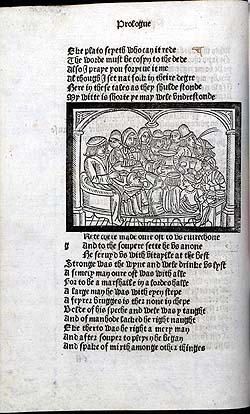 Prologue
Eke plato seyeth who can it rede
The worde must be cosyn to the dede
Also I praye you foryeue it me
Al though I set nat folk in their degre
Here in these tales as they shulde stonde
My witte is shorte ye may wele vnderstonde
Grete chere made our ost to vs euerichone
And to the soupere sette he vs anone
He seruyd vs with vitaylle at the best
Stronge was the wyne and wele drinke vs lyst
A semely man oure ost was with alle
For to be a marshalle in a lordes halle
A large man he was with eyen stepe
A feyrer burgeys is ther none in chepe
Bolde of his speche and wele was y taught
And of manhode lacked he right naught
Eke therto was he right a mery man
And after souper to pleyen he began
And spake of mirth amonge othre thinges